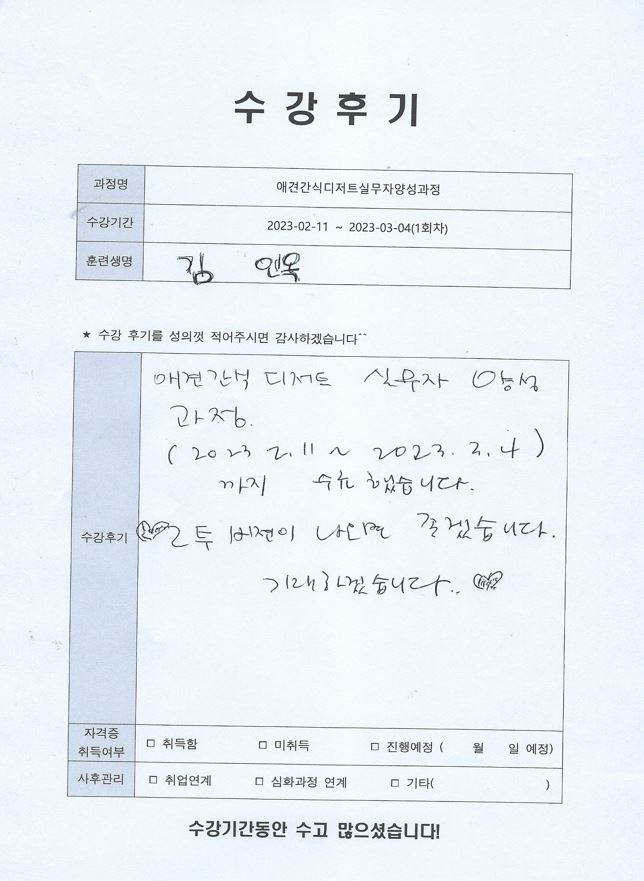 수 강 후 기
과정명 애견간식디저트실무자양성과정
수강기간 2023-02-11 ~ 2023-03-04(1회차)
훈련생명 김 인옥
★ 수강 후기를 성의껏 적어주시면 감사하겠습니다^^
애견간식 디저트 실무자 양성
과정.
(2023 2.11 ~ 2023. 3. 4)
까지 했습니다.
수강후기
투 버젼이 나오면 좋겠습니다.
기대하겠습니다..
자격증
취득여부
□ 취득함 □ 미취득 □ 진행예정 ( 월 일 예정)
사후관리 □ 취업연계 □ 심화과정 연계 □ 기타( )
수강기간동안 수고 많으셨습니다!